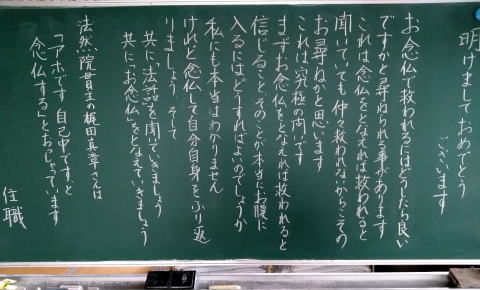 明けましておめでとう
ございます
お念仏で救われるにはどうしたら良い
ですかと尋ねられる事があります
これは念仏をとなえれば救われると
聞いていても仲々救われないからこその
お尋ねかと思います
これは究極の問です
まずお念仏をとなえれば救われると
信じることそのことが本当にお腹に
入るにはどうすればよいのでしょうか
私にも本当はわかりません
けれど念仏して自分自身をふり返
りましょう そして
共に“法話”を聞いていきましょう
共に“お念仏”をとなえていきましょう
法然院貫主の梶田真章さんは
「アホです 自己中ですと
念仏する」とおっしゃっています
住職